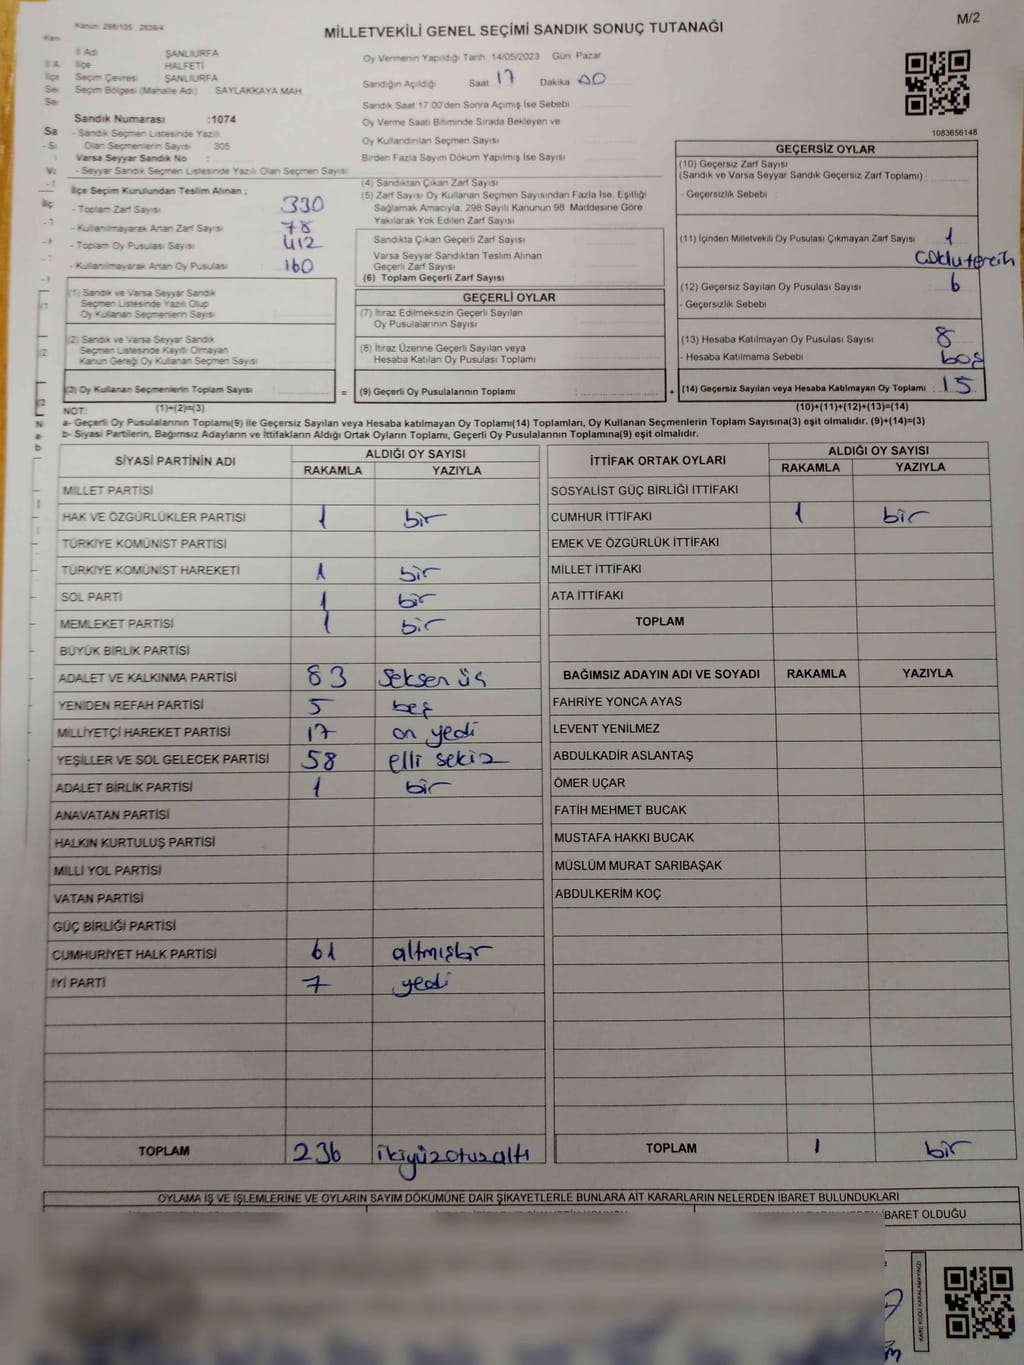 Kanun: 298/105 , 2839/4
MİLLETVEKİLİ GENEL SEÇİMİ SANDIK SONUÇ TUTANAĞI
M/2
İl Adı ŞANLIURFA
İlçe HALFETİ
Seçim Çevresi ŞANLIURFA
Seçim Bölgesi (Mahalle Adı) SAYLAKKAYA MAH
Sandık Numarası :1074
- Sandık Seçmen Listesinde Yazılı
Olan Seçmenlerin Sayısı 305
Varsa Seyyar Sandık No :
- Seyyar Sandık Seçmen Listesinde Yazılı Olan Seçmen Sayısı
İlçe Seçim Kurulundan Teslim Alınan ;
- Toplam Zarf Sayısı 330
- Kullanılmayarak Artan Zarf Sayısı 78
- Toplam Oy Pusulası Sayısı 412
- Kullanılmayarak Artan Oy Pusulası 160
Oy Vermenin Yapıldığı Tarih 14/05/2023 Gün Pazar
Sandığın Açıldığı Saat 17 Dakika 00
Sandık Saat 17.00'den Sonra Açılmış İse Sebebi
Oy Verme Saati Bitiminde Sırada Bekleyen ve
Oy Kullandırılan Seçmen Sayısı
Birden Fazla Sayım Döküm Yapılmış İse Sayısı
1083656148
(1) Sandık ve Varsa Seyyar Sandık
Seçmen Listesinde Yazılı Olup
Oy Kullanan Seçmenlerin Sayısı
(2) Sandık ve Varsa Seyyar Sandık
Seçmen Listesinde Kayıtlı Olmayan
Kanun Gereği Oy Kullanan Seçmen Sayısı
(3) Oy Kullanan Seçmenlerin Toplam Sayısı
=
(4) Sandıktan Çıkan Zarf Sayısı
(5) Zarf Sayısı Oy Kullanan Seçmen Sayısından Fazla İse, Eşitliği
Sağlamak Amacıyla, 298 Sayılı Kanunun 98. Maddesine Göre
Yakılarak Yok Edilen Zarf Sayısı
Sandıkta Çıkan Geçerli Zarf Sayısı
Varsa Seyyar Sandıktan Teslim Alınan
Geçerli Zarf Sayısı
(6) Toplam Geçerli Zarf Sayısı
GEÇERLİ OYLAR
(7) İtiraz Edilmeksizin Geçerli Sayılan
Oy Pusulalarının Sayısı
(8) İtiraz Üzerine Geçerli Sayılan veya
Hesaba Katılan Oy Pusulası Toplamı
(9) Geçerli Oy Pusulalarının Toplamı
+
GEÇERSİZ OYLAR
(10) Geçersiz Zarf Sayısı
(Sandık ve Varsa Seyyar Sandık Geçersiz Zarf Toplamı) :
- Geçersizlik Sebebi :
(11) İçinden Milletvekili Oy Pusulası Çıkmayan Zarf Sayısı 1
çoklu tercih
(12) Geçersiz Sayılan Oy Pusulası Sayısı 6
- Geçersizlik Sebebi
(13) Hesaba Katılmayan Oy Pusulası Sayısı 8
- Hesaba Katılmama Sebebi : boş
(14) Geçersiz Sayılan veya Hesaba Katılmayan Oy Toplamı : 15
NOT: (1)+(2)=(3) (10)+(11)+(12)+(13)=(14)
a- Geçerli Oy Pusulalarının Toplamı(9) ile Geçersiz Sayılan veya Hesaba katılmayan Oy Toplamı(14) Toplamları, Oy Kullanan Seçmenlerin Toplam Sayısına(3) eşit olmalıdır. (9)+(14)=(3)
b- Siyasi Partilerin, Bağımsız Adayların ve İttifakların Aldığı Ortak Oyların Toplamı, Geçerli Oy Pusulalarının Toplamına(9) eşit olmalıdır.
SİYASİ PARTİNİN ADI ALDIĞI OY SAYISI
RAKAMLA YAZIYLA
MİLLET PARTİSİ
HAK VE ÖZGÜRLÜKLER PARTİSİ 1 bir
TÜRKİYE KOMÜNİST PARTİSİ
TÜRKİYE KOMÜNİST HAREKETİ 1 bir
SOL PARTİ 1 bir
MEMLEKET PARTİSİ 1 bir
BÜYÜK BİRLİK PARTİSİ
ADALET VE KALKINMA PARTİSİ 83 seksen üç
YENİDEN REFAH PARTİSİ 5 beş
MİLLİYETÇİ HAREKET PARTİSİ 17 on yedi
YEŞİLLER VE SOL GELECEK PARTİSİ 58 elli sekiz
ADALET BİRLİK PARTİSİ 1 bir
ANAVATAN PARTİSİ
HALKIN KURTULUŞ PARTİSİ
MİLLİ YOL PARTİSİ
VATAN PARTİSİ
GÜÇ BİRLİĞİ PARTİSİ
CUMHURİYET HALK PARTİSİ 61 altmışbir
İYİ PARTİ 7 yedi
TOPLAM 236 ikiyüzotuzaltı
İTTİFAK ORTAK OYLARI ALDIĞI OY SAYISI
RAKAMLA YAZIYLA
SOSYALİST GÜÇ BİRLİĞİ İTTİFAKI
CUMHUR İTTİFAKI 1 bir
EMEK VE ÖZGÜRLÜK İTTİFAKI
MİLLET İTTİFAKI
ATA İTTİFAKI
TOPLAM
BAĞIMSIZ ADAYIN ADI VE SOYADI RAKAMLA YAZIYLA
FAHRİYE YONCA AYAS
LEVENT YENİLMEZ
ABDULKADİR ASLANTAŞ
ÖMER UÇAR
FATİH MEHMET BUCAK
MUSTAFA HAKKI BUCAK
MÜSLÜM MURAT SARIBAŞAK
ABDULKERİM KOÇ
TOPLAM 1 bir
OYLAMA İŞ VE İŞLEMLERİNE VE OYLARIN SAYIM DÖKÜMÜNE DAİR ŞİKAYETLERLE BUNLARA AİT KARARLARIN NELERDEN İBARET BULUNDUKLARI
İBARET OLDUĞU
KARE KODU KARALAMAYINIZ!